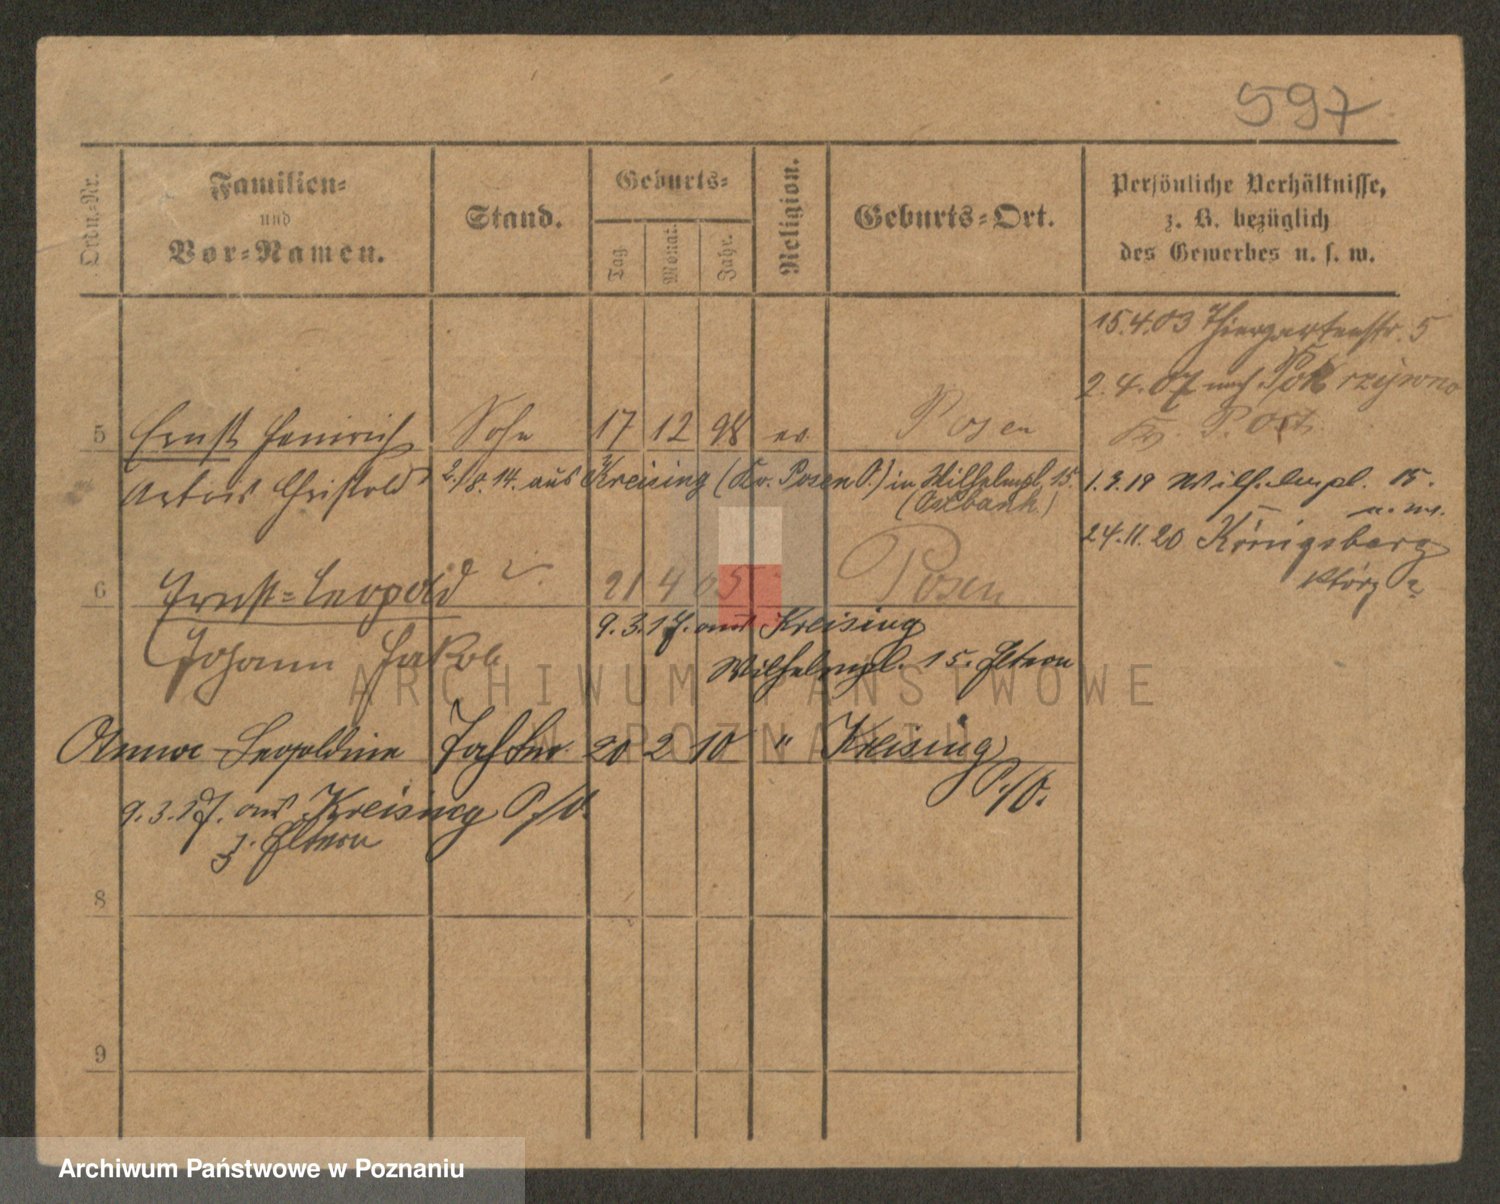 597
Ordn.-Nr.
Familien-
und
Vor-Namen.
Stand.
Geburts-
Tag
Monat.
Jahr.
Religion.
Geburts-Ort.
Persönliche Verhältnisse,
z. B. bezüglich
des Gewerbes u. s. w.
15.4.03 Thiergartenstr. 5
2.4.07 nach Pokrzywno
Kr. P. Ost.
5 Ernst Heinrich Sohn 17 12 98 ev. Posen
2./8.14. aus Kreising (Kr. Posen O.) in Wilhelmpl. 15.
(Ostbank.)
1.3.19 Wilhelmpl. 15.
24.11.20 Königsberg
6 Ernst-Leopold 21 4 05 Posen
Johann Jakob
9.3.17. aus Kreising
Wilhelmpl. 15. Eltern
Anna-Leopoldine Tochter 20 2 10 " Kreising
P./O.
9.3.17. aus Kreising P./O.
z. Eltern
8
9
ARCHIWUM PAŃSTWOWE
W POZNANIU
Archiwum Państwowe w Poznaniu